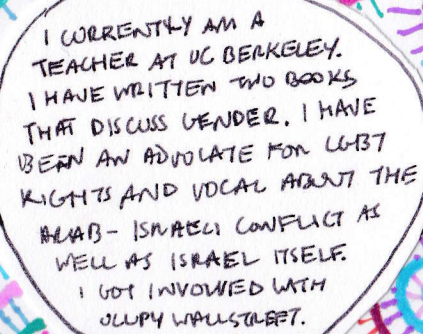 I CURRENTLY AM A
TEACHER AT UC BERKELEY.
I HAVE WRITTEN TWO BOOKS
THAT DISCUSS GENDER. I HAVE
BEEN AN ADVOCATE FOR LGBT
RIGHTS AND VOCAL ABOUT THE
ARAB-ISRAELI CONFLICT AS
WELL AS ISRAEL ITSELF.
I GOT INVOLVED WITH
OCCUPY WALLSTREET.